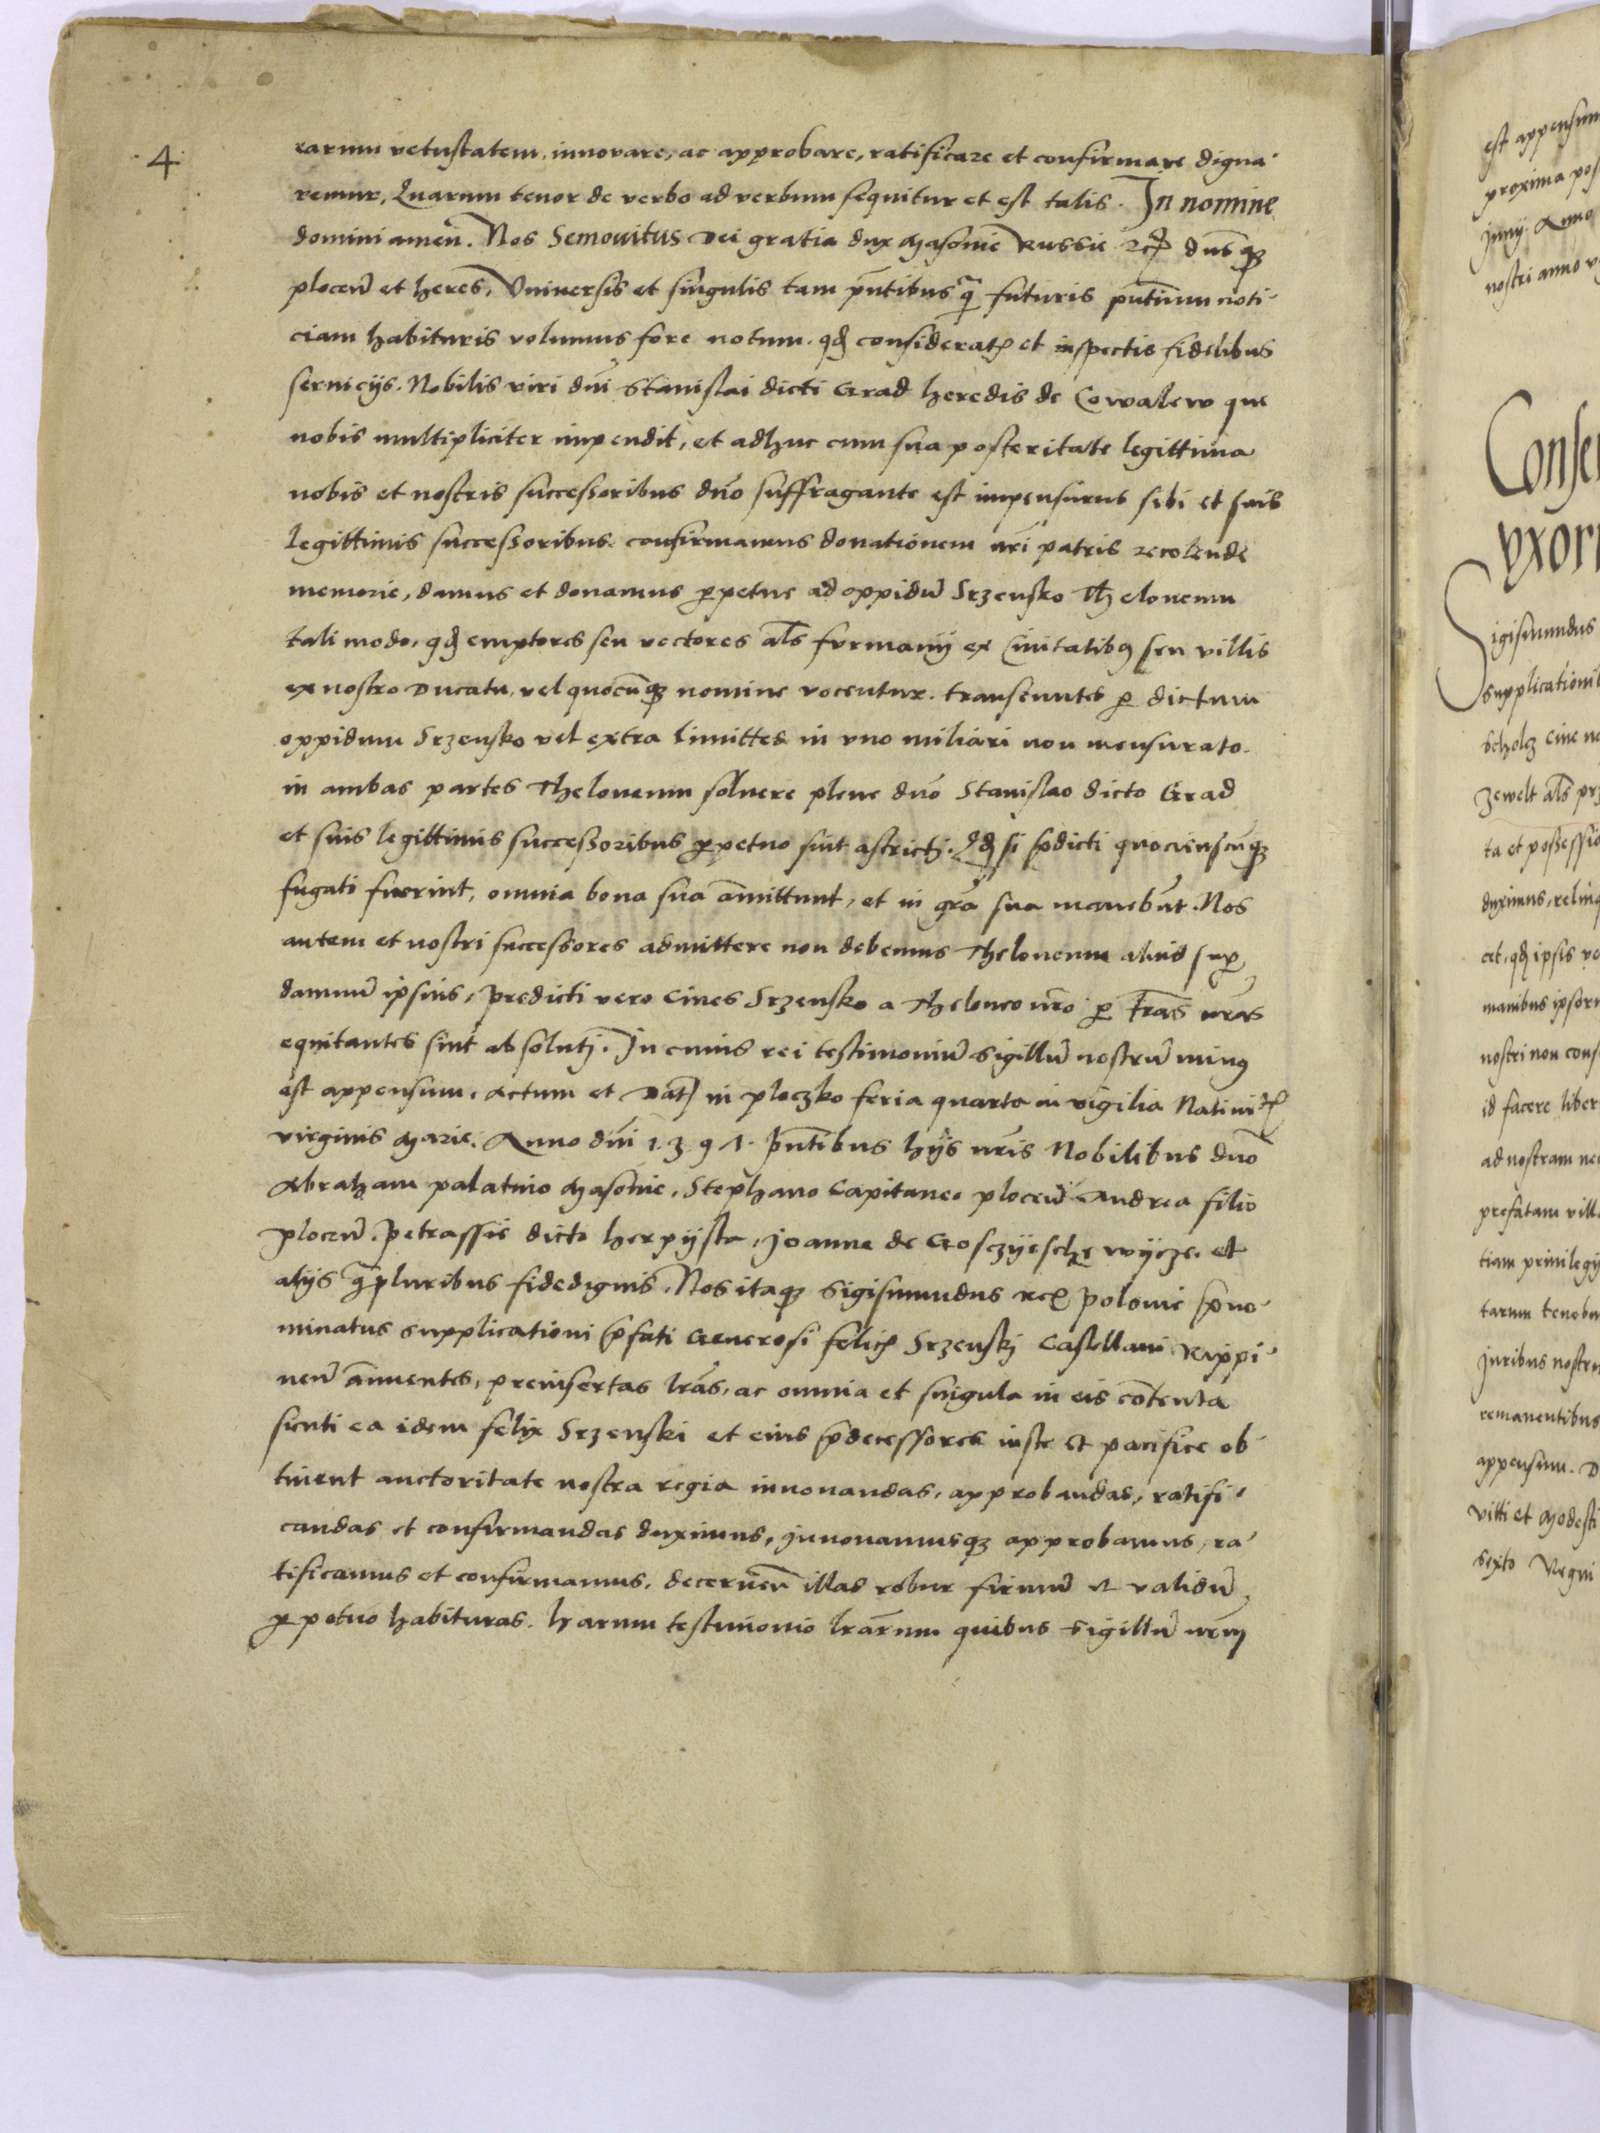 4
rarum vetustatem, innovare, ac approbare, ratificare et confirmare digna-
remur, Quarum tenor de verbo ad verbum sequitur et est talis. In nomine
domini amen. Nos Semouitus Dei gratia dux Masouie Russie dnsqz
plocen et heres, Vniuersis et singulis tam pntibus q futuris pntium noti-
ciam habituris volumus fore notum. qd considerat et inspectis fidelibus
seruicijs. Nobilis viri dni Stanislai dicti Grad heredis de Cowalew que
nobis multipliciter impendit, et adhuc cum sua posteritate legittima
nobis et nostris successoribus dno suffragante est impensurus sibi et suis
legittimis successoribus. confirmamus donationem nri patris recolende
memorie, damus et donamus perpetue ad oppidu Srzensko Theloneum
tali modo, qd emptores seu vectores als furmanij ex Ciuitatibus seu villis
ex nostro Ducatu, vel quocunqz nomine vocentur. transeuntes per dictum
oppidum Srzensko vel extra limittes in vno miliari non mensurato.
in ambas partes Theloneum soluere plene dno Stanislao dicto Grad
et suis legittimis successoribus perpetuo sint astricti. Qd si pdicti quocuinscunqz
fugati fuerint, omnia bona sua amittunt, et in gra sua manebunt. Nos
autem et nostri successores admittere non debemus Theloneum aliud super
damnu ipsius, Predicti vero Ciues Srzensko a Theloneo nro per tras nras
equitantes sint absoluti. In cuius rei testimoniu sigillu nostru minus
est appensum. Actum et Dat in ploczko feria quarta in vigilia Natiui
virginis Marie. Anno dni 1.3.9.1. pntibus hijs nris Nobilibus dno
Abraham palatino Masouie, Stephano Capitaneo plocen Andrea filio
plocen. Petrassie dicto herpijsta, Joanne de Gosczijesche wijcze. et
alijs qpluribus fidedignis. Nos itaqz Sigismundus rex Polonie pno-
minatus supplicationi pfati Generosi felic Srzenskj Castellani Rippi-
nen annuentes, preinsertas lras, ac omnia et singula in eis contenta
sicuti ea idem felix Srzenski et eius pdecessores iuste et pacifice ob-
tinent auctoritate nostra regia innouandas, approbandas, ratifi-
candas et confirmandas duximus, Jnnouamusqz approbamus, ra-
tificamus et confirmamus, decernen illas robur firmu et validu
perpetuo habituras. harum testimonio lrarum quibus sigillu nrm
est appensum
proxima pos
Junij. Anno
nostri anno
Consen
vxori
Sigismundus
supplicationi
scholz
zewelt als prz
ta et possessio
duximus, relinq
cet, qd ipsis
manibus ipsor
nostri non cons
id facere liber
ad nostram
prefatam vill
tiam priuilegij
tarum tenebu
Juribus nostr
remanentibus
appensum. D
vitti et Modesti
sexto Regni